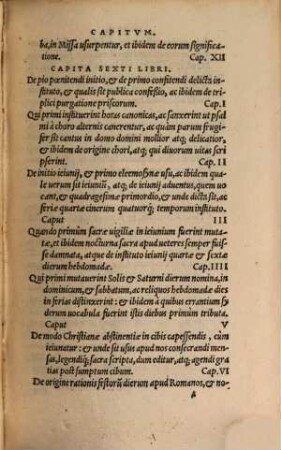 CAPITVM.
ba, in Missa usurpentur, et ibidem de eorum significa-
tione. Cap. XII
CAPITA SEXTI LIBRI.
De pio pœnitendi initio, & de primo confitendi delicta in-
stituto, & qualis sit publica confessio, ac ibidem de tri-
plici purgatione priscorum. Cap. I
Qui primi instituerint horas canonicas, ac sanxerint ut psal-
mi à choro alternis canerentur, ac quàm parum frugi-
fer sit cantus in domo domini mollior atq; delicatior,
& ibidem de origine chori, atq; qui diuorum uitas scri
pserint. Cap. II
De initio ieiunij, & primo eleemosynæ usu, ac ibidem qua-
le uerum sit ieiunium, atq; de ieiunij aduentus, quem uo
cant, & quadragesimæ primordio, & unde dictū sit, ac
feriæ quartæ cinerum quatuorq; temporum instituto.
Caput III
Quando primùm sacræ uigiliæ in ieiunium fuerint muta-
tæ, et ibidem nocturna sacra apud ueteres semper fuis-
se damnata, atque de instituto ieiunij quartæ & sextæ
dierum hebdomadæ. Cap. IIII
Qui primi mutauerint Solis & Saturni dierum nomina, in
dominicum, & sabbatum, ac reliquos hebdomadæ dies
in ferias distinxerint: & ibidem à quibus errantium sy
derum uocabula fuerint istis diebus primùm tributa.
Caput V
De modo Christianæ abstinentiæ in cibis capessendis, cùm
ieiunatur: & unde sit usus apud nos consecrandi men-
sas, legendiq; sacra scripta, dum editur, atq; agendi gra-
tias post sumptum cibum. Cap. VI
De origine rationis festorū dierum apud Romanos, & no-